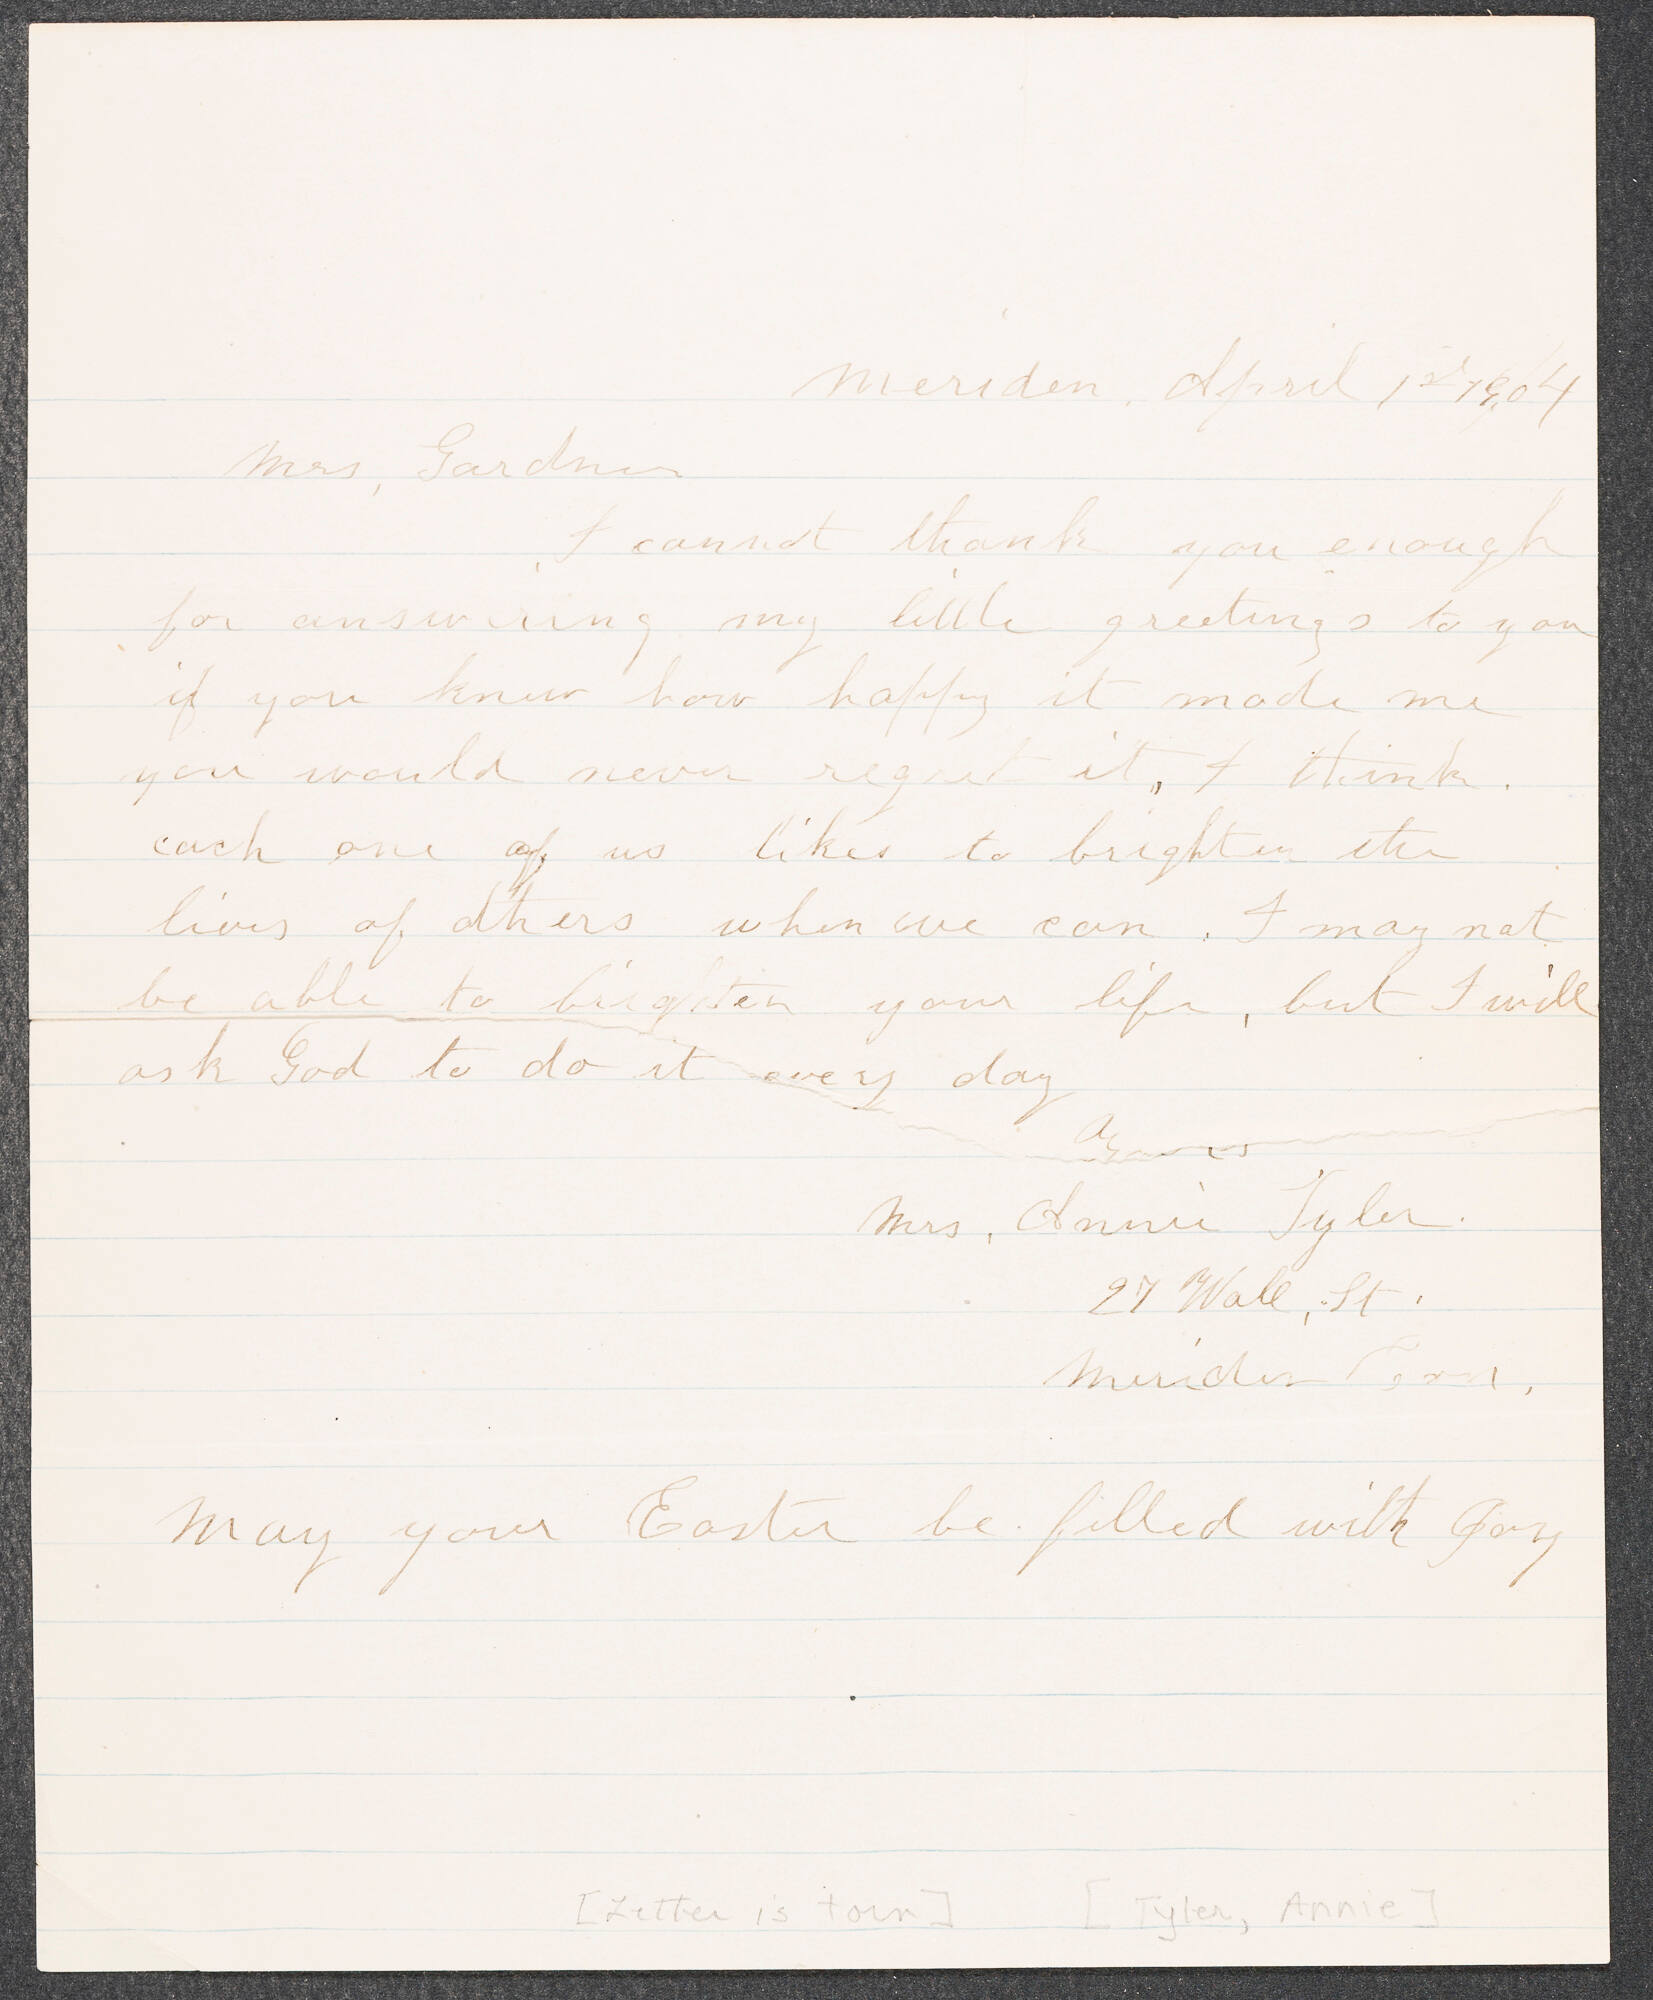 Meriden, April 1st 1904
Mrs, Gardner
I cannot thank you enough
for answering my little greetings to you
if you knew how happy it made me
you would never regret it, I think.
each one of us likes to brighten the
lives of others when we can. I may not
be able to brighten your life, but I will
ask God to do it every day
Yours
Mrs, Annie Tyler.
27 Wall, St.
Meriden Conn,
May your Easter be filled with Joy
[Letter is torn] [Tyler, Annie]